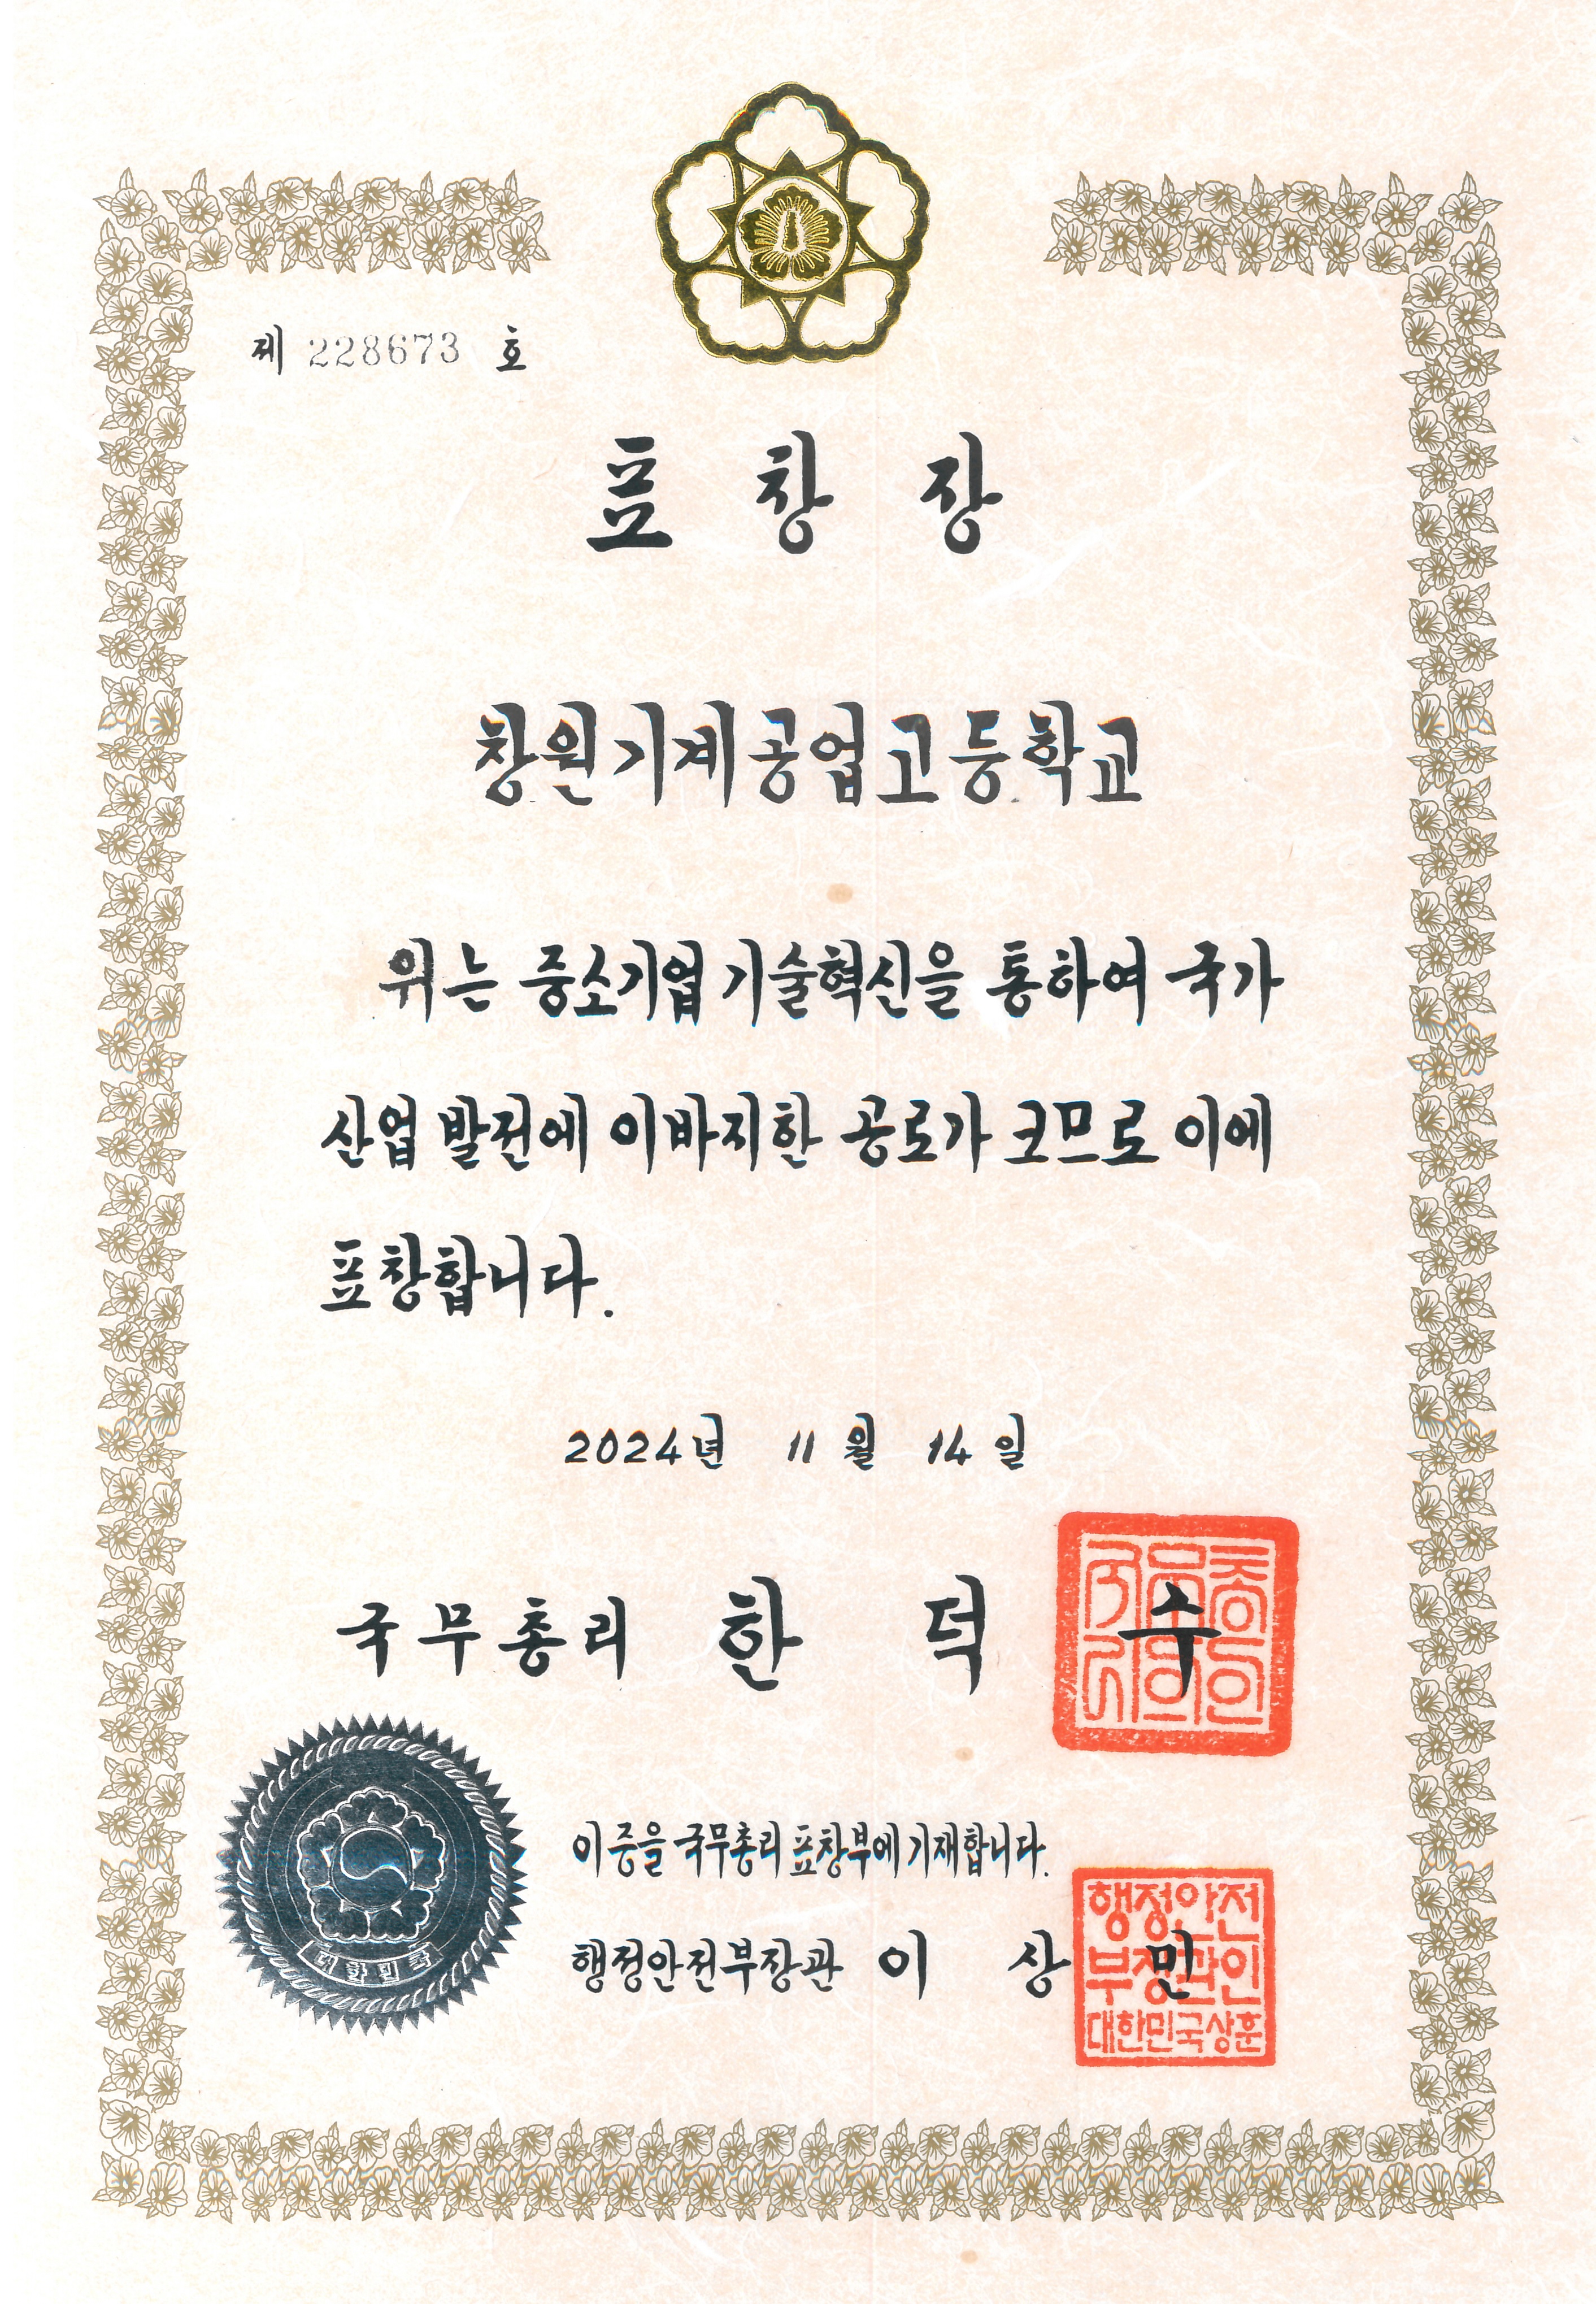 제 228673 호
표 창 장
창원기계공업고등학교
위는 중소기업 기술혁신을 통하여 국가
산업 발전에 이바지한 공로가 크므로 이에
표창합니다.
2024년 11월 14일
국무총리 한 덕 수
국무총리의인
이 증을 국무총리 표창부에 기재합니다.
행정안전부장관 이 상 민
행정안전
부장관인
대한민국상훈
대한민국